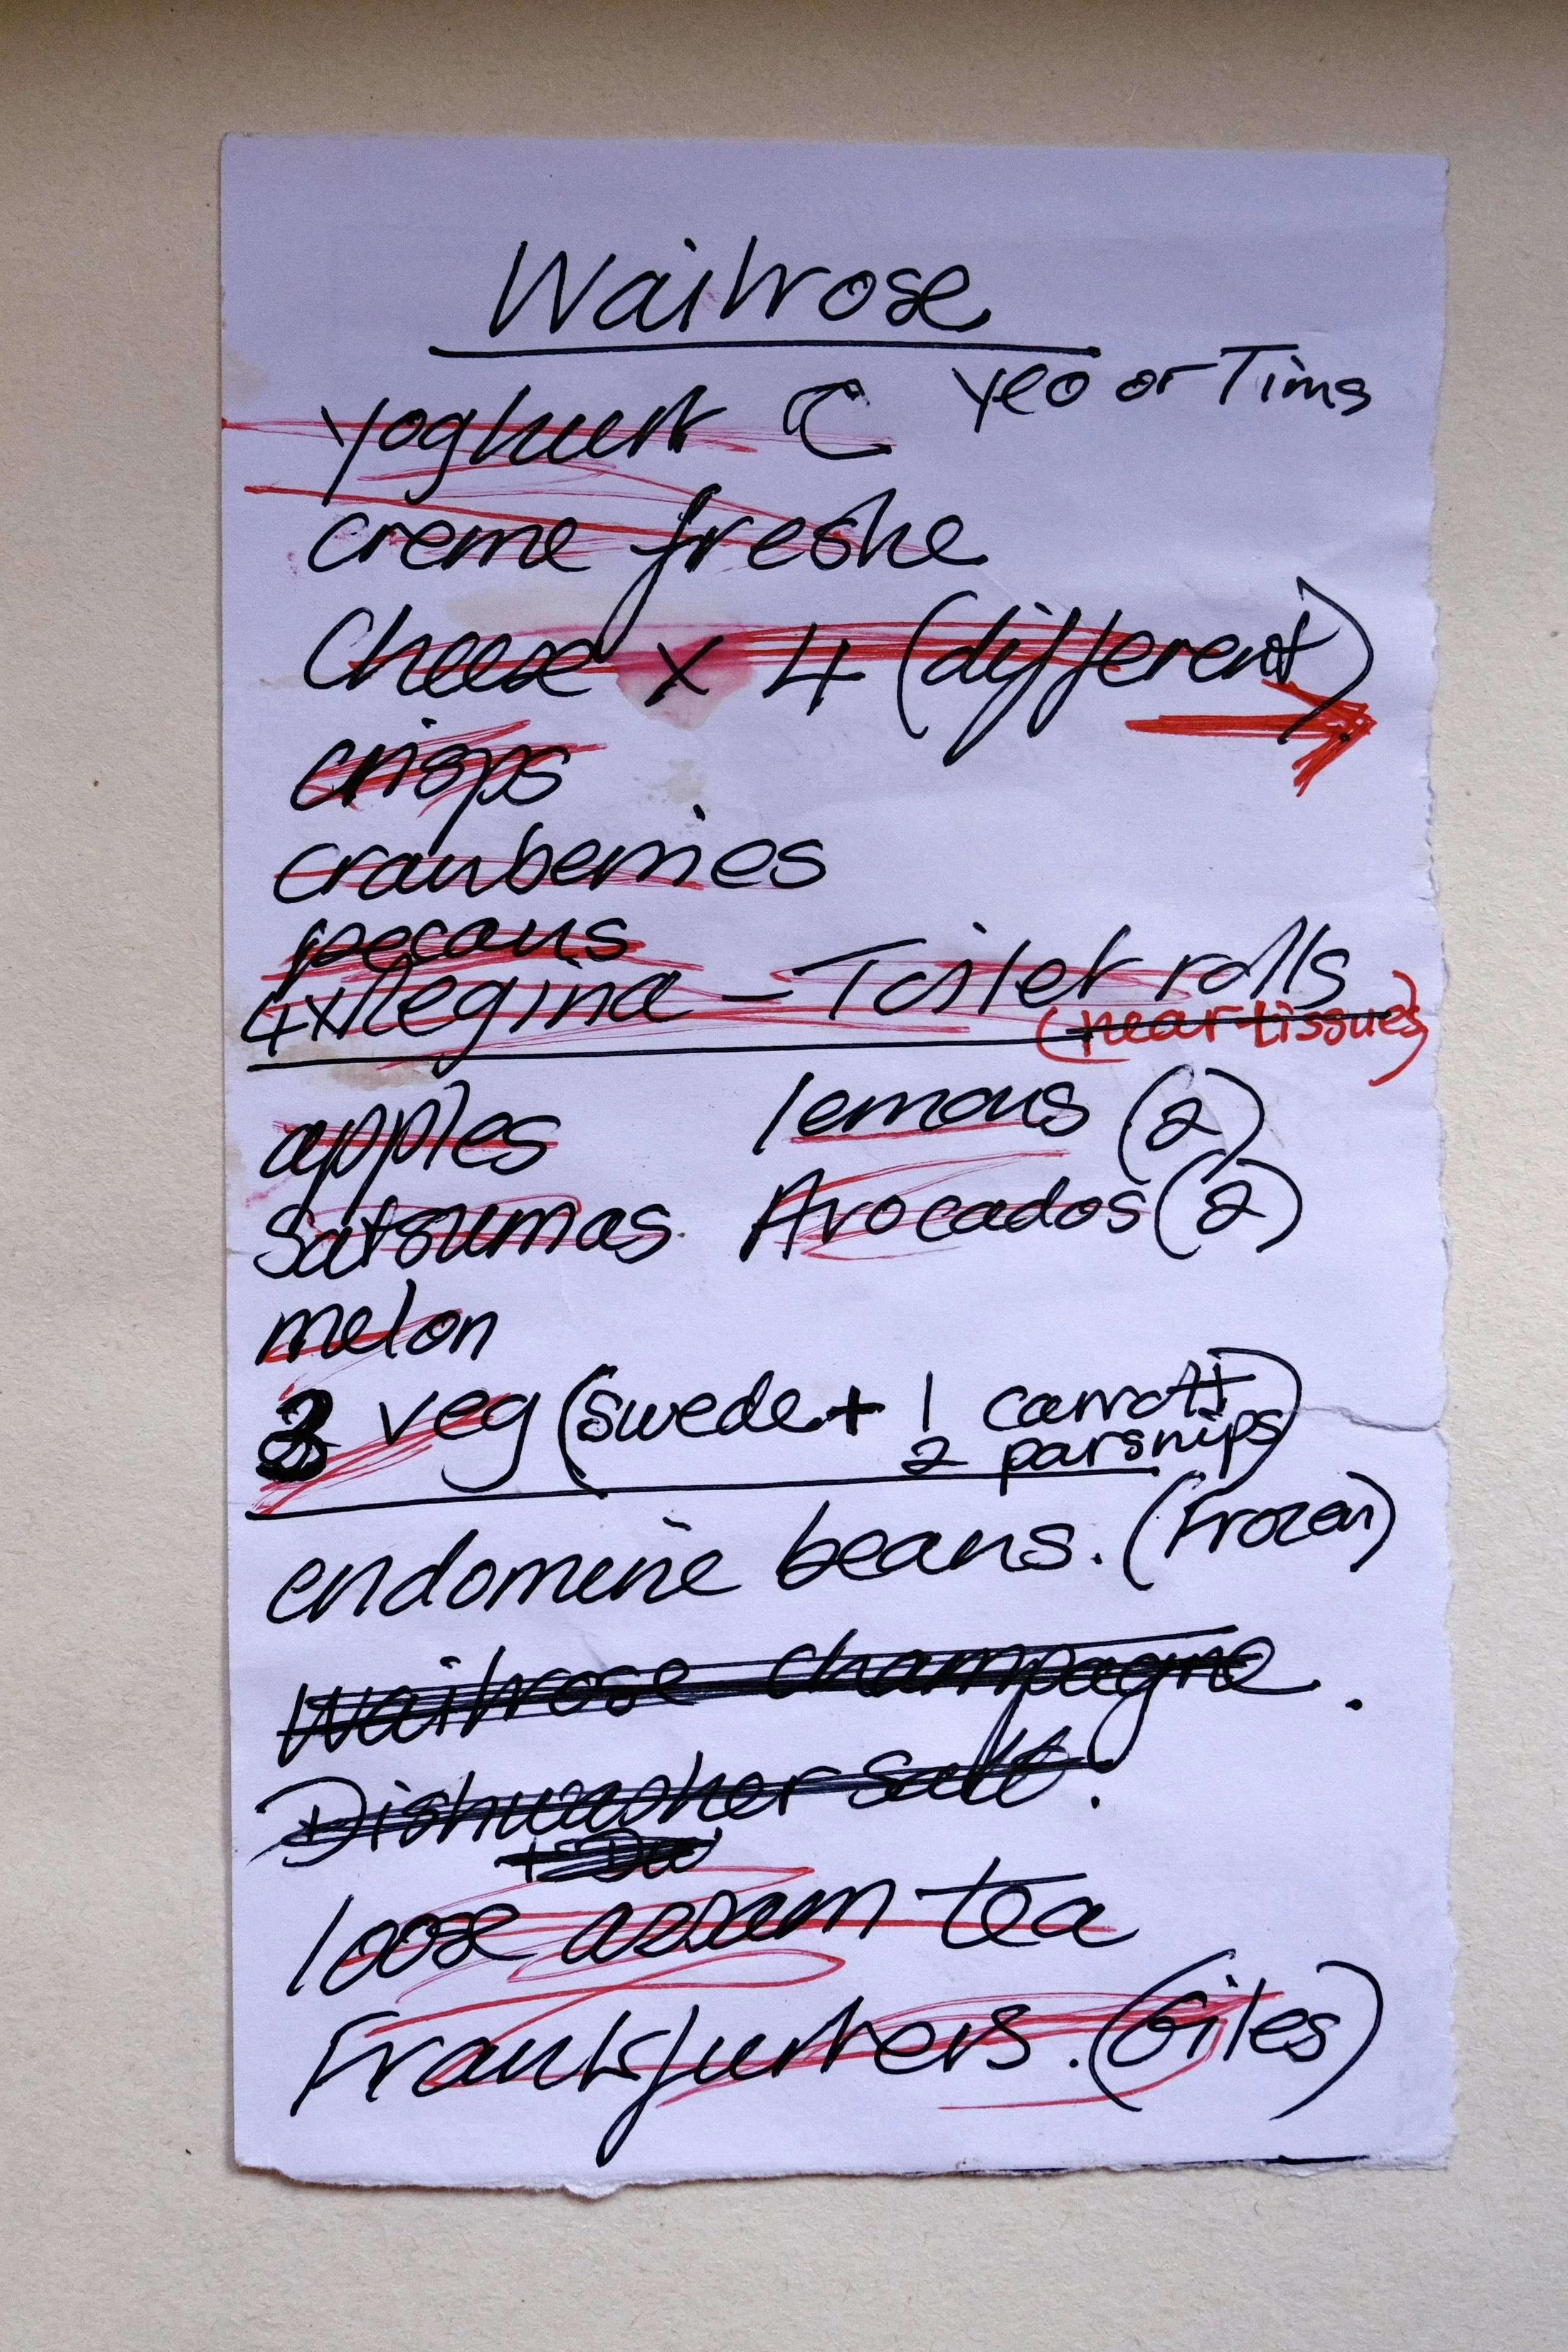 Waitrose
Yeo or Tims
Yoghurt
creme freshe
Cheese x 4 (different)
crisps
cranberries
pecans
4x Regina - Toilet rolls
(near tissues)
apples lemons (2)
Satsumas. Avocados (2)
melon
3 veg (swede + 1 carrott
2 parsnips)
endomine beans. (Frozen)
Waitrose champagne.
Dishwasher salt.
loose assam tea
Frankfurters. (Giles)